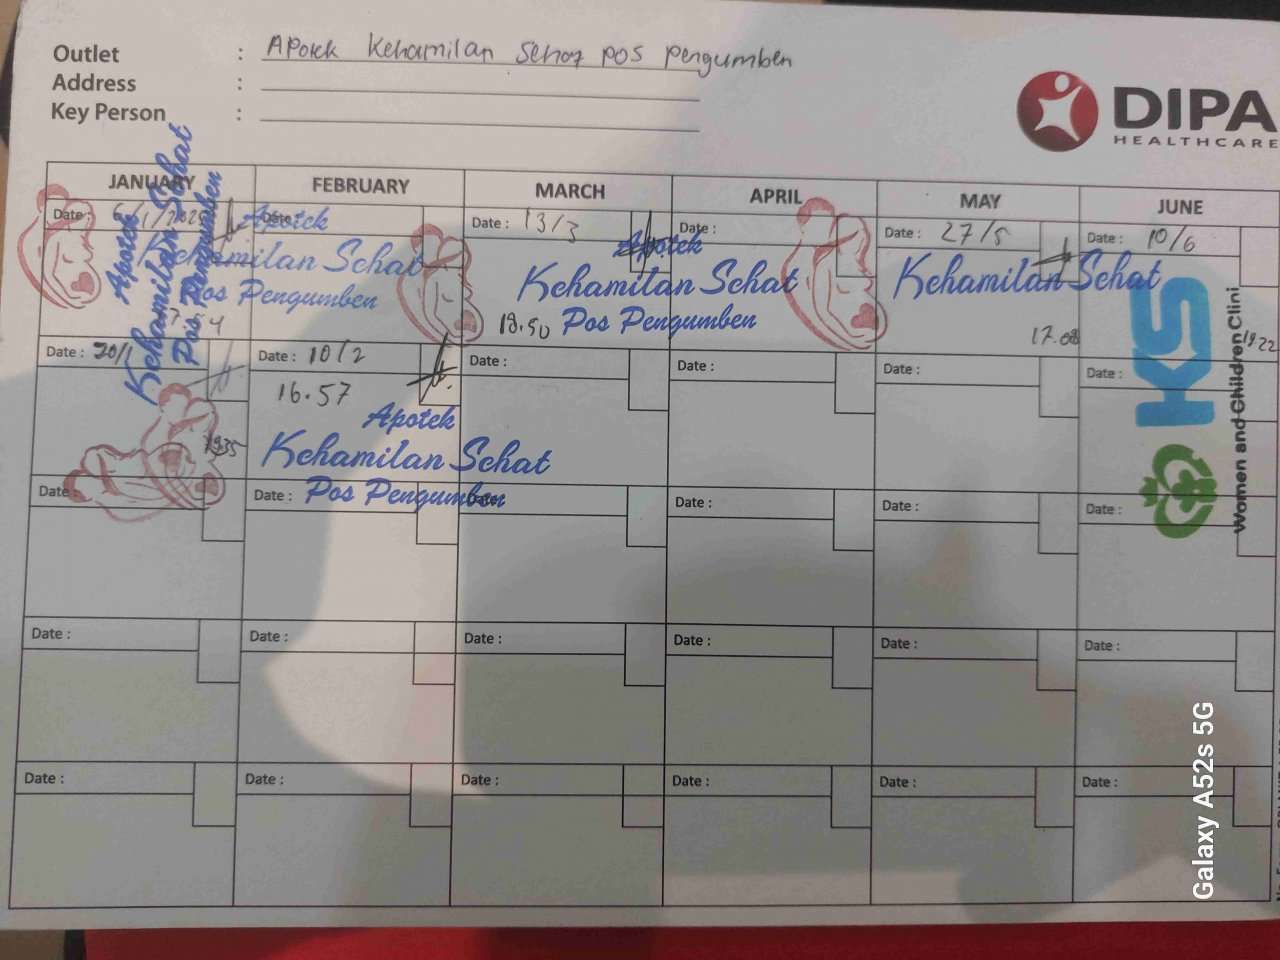 Outlet : Apotek Kehamilan Sehat pos pengumben
Address :
Key Person :
DIPA
HEALTHCARE
JANUARY FEBRUARY MARCH APRIL MAY JUNE
Date : 6/1/2025 Date : Date : 13/3 Date : Date : 27/5 Date : 10/6
Apotek
Kehamilan Sehat
Pos Pengumben
Apotek
Kehamilan Sehat
Pos Pengumben
Apotek
Kehamilan Sehat
18.50 Pos Pengumben
Kehamilan Sehat
17.08
19.22
KS
Women and Children Clini
Date : 20/1 Date : 10/2 Date : Date : Date : Date :
16.57
1935
Apotek
Kehamilan Sehat
Pos Pengumben
Date : Date : Date : Date : Date : Date :
Date : Date : Date : Date : Date : Date :
Date : Date : Date : Date : Date : Date :
Galaxy A52s 5G